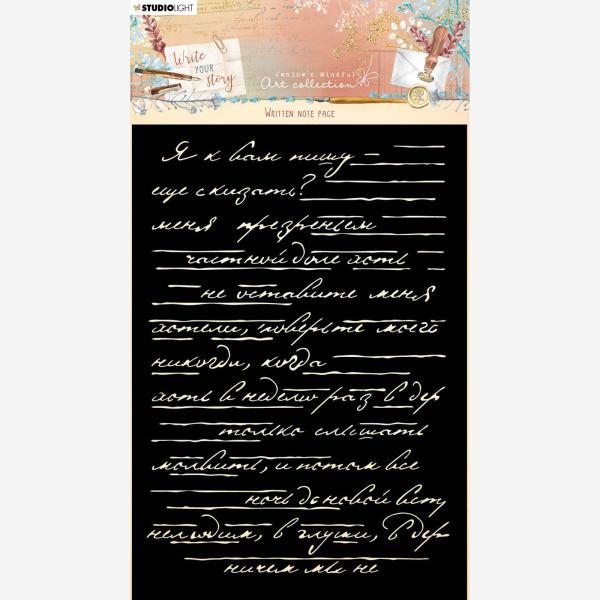 STUDIOLIGHT
Write
YOUR
story
Jenine's Mindful
Art collection
WRITTEN NOTE PAGE
Я к вам пишу —
еще сказать?
меня презреньем
частной доле хоть
не оставите меня
хотели, поверьте моего
никогда, когда
хоть в неделю раз в дер
только слышать
молвить, и потом все
ночь до новой вст
нелюдим, в глуши, в дер
ничем мы не